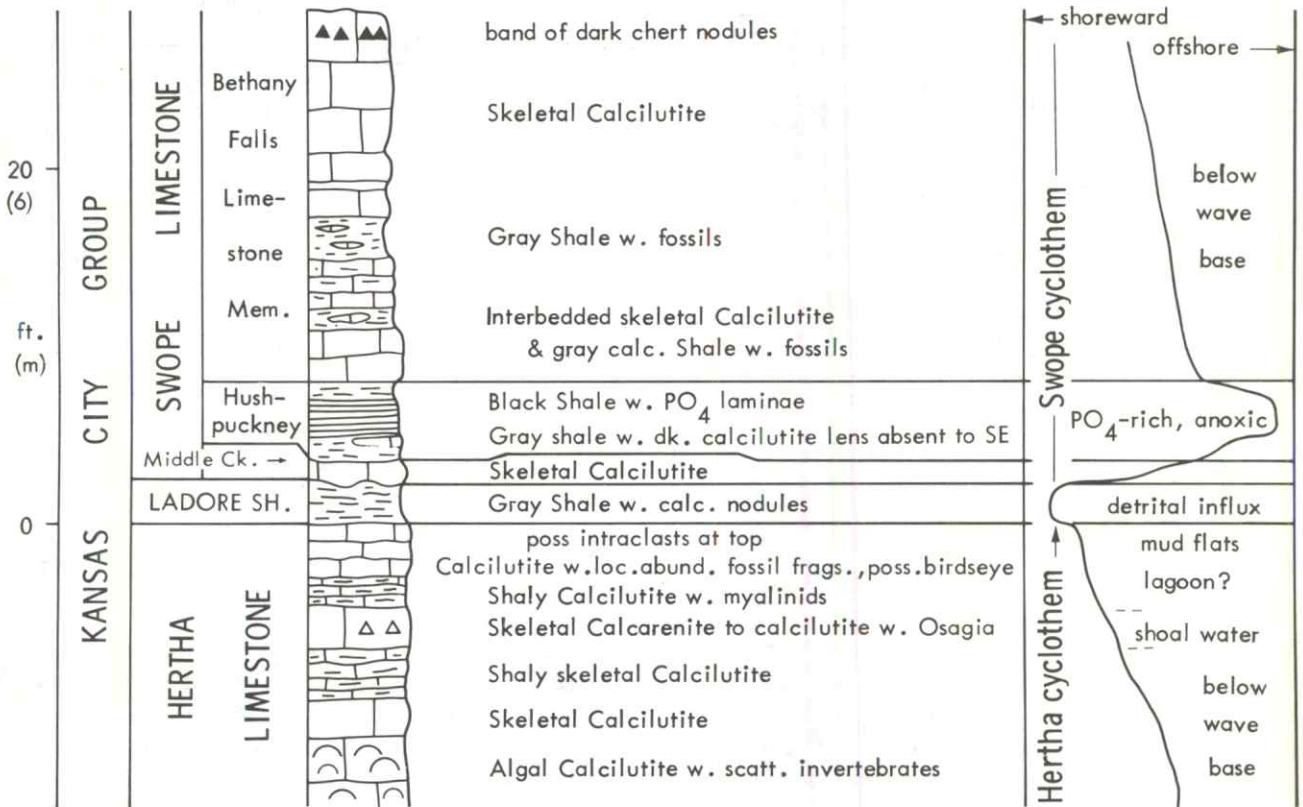 20
(6)
ft.
(m)
0
KANSAS CITY GROUP
SWOPE LIMESTONE
Bethany
Falls
Lime-
stone
Mem.
Hush-
puckney
Middle Ck. →
LADORE SH.
HERTHA
LIMESTONE
band of dark chert nodules
Skeletal Calcilutite
Gray Shale w. fossils
Interbedded skeletal Calcilutite
& gray calc. Shale w. fossils
Black Shale w. PO4 laminae
Gray shale w. dk. calcilutite lens absent to SE
Skeletal Calcilutite
Gray Shale w. calc. nodules
poss intraclasts at top
Calcilutite w.loc.abund. fossil frags.,poss.birdseye
Shaly Calcilutite w. myalinids
Skeletal Calcarenite to calcilutite w. Osagia
Shaly skeletal Calcilutite
Skeletal Calcilutite
Algal Calcilutite w. scatt. invertebrates
← shoreward
offshore →
Swope cyclothem
below
wave
base
PO4-rich, anoxic
detrital influx
Hertha cyclothem
mud flats
lagoon?
shoal water
below
wave
base